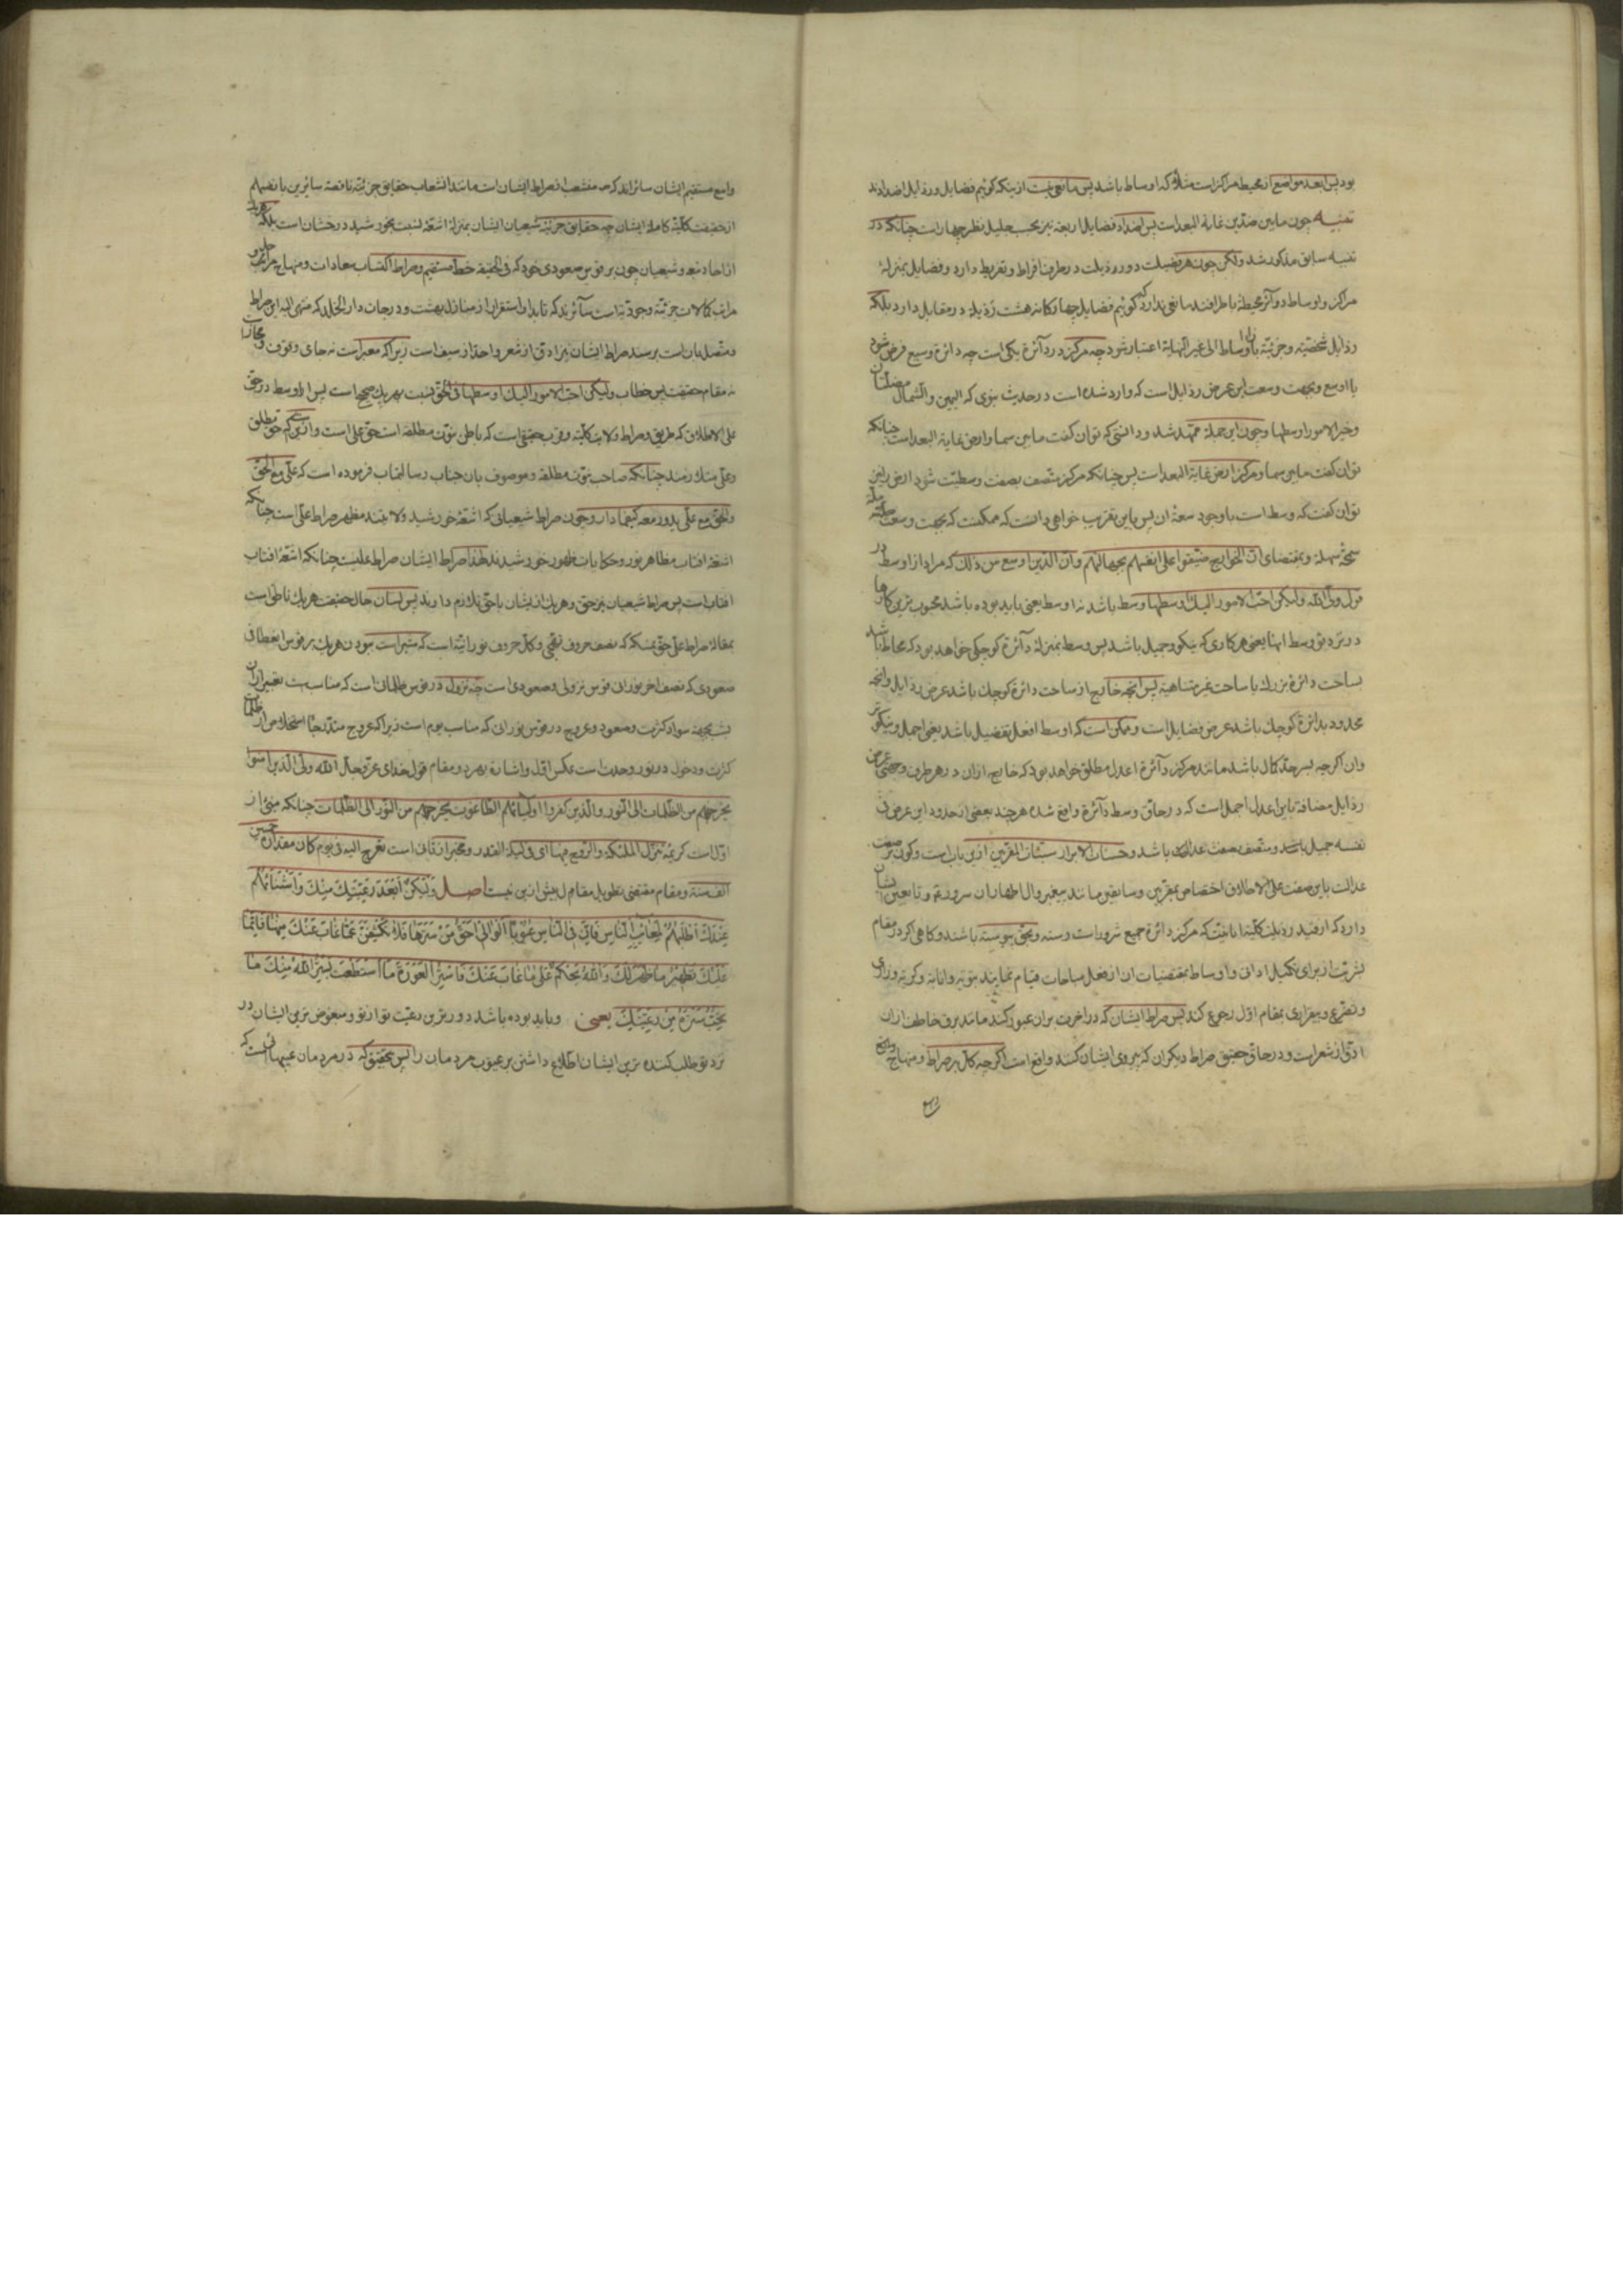 بود پس ابعد مواضع از محیط مراکز است مثلا که اوساط باشد پس مانعی نیست ازینکه کوئیم فضایل و رذایل اضدادند
تنبیه چون مابین ضدین غایة البعد است پس اضداد فضایل اربعه نیز بحسب جلیل نظر چهار است چنانکه در
تنبیه سابق مذکور شد ولکن چون هر فضیلت دو رذیلت در طرف افراط و تفریط دارد و فضایل بمنزلهٔ
مراکز و اوساط و دوائر محیطه با طرافند مانعی ندارد که کوئیم فضایل چهارکانه هشت رذیله در مقابل دارد بلکه
رذایل شخصیّه و جزئیّه باوساط الی غیر النهایة اعتبار شود چه مرکز در دائرهٔ یکی است چه دائرهٔ وسیع فرض شود
یا اوسع و بجهت وسعت این عرض رذایل است که وارد شده است در حدیث نبوی که الیمین والشمال مضلتان
وخیر الامور اوسطها و چون این جمله ممهد شد و دانستی که توان کفت مابین سما و ارض غایة البعد است چنانکه
توان کفت مابین سما و مرکز ارض غایة البعد است پس چنانکه مرکز متصف بصفت وسطیت شود ارض نیز
توان کفت که وسط است با وجود سعهٔ ان پس باین تقریب خواهی دانست که ممکنست که بجهت وسعت
سمحهٔ سهله و بمقتضای انّ الخوارج ضیّقوا علی انفسهم بجهالتهم وانّ الدّین اوسع من ذلک که مراد از اوسط در
قول ولیّ الله ولیکن احبّ الامور الیک اوسطها وسط باشد نه اوسط یعنی باید بوده باشد محبوب ترین کارها
در نزد تو وسط انها یعنی هر کاری که نیکو و جمیل باشد پس وسط بمنزلهٔ دائرهٔ کوچکی خواهد بود که محاط باشد
بساحت دائرهٔ بزرک با ساحت غیر متناهیه پس انچه خارج از ساحت دائرهٔ کوچک باشد عرض رذایل و انچه
محدود بدائرهٔ کوچک باشد عرض فضایل است و ممکن است که اوسط افعل تفضیل باشد یعنی اجمل و نیکوتر
وان اکرچه بسرحد کمال باشد مانند مرکز دائرهٔ اعدل مطلق خواهد بود که خارج ازان در هر طرف و جهتی عرض
رذایل مضافة باین اعدل اجمل است که در حاقّ وسط دائرهٔ واقع شده هرچند بعضی از حدود این عرض فی
نفسه جمیل باشد و متصف بصفت عدالت باشد و حسنات الابرار سیّئات المقرّبین ازین باب است و کون بر صفت
عدالت باین صفت علی الاطلاق اختصاص بمقرّبین و سابقین مانند پیغمبر وال اطهار ان سرور و تابعین ایشان
دارد که از قید رذیلت کلیّة انانیّت که مرکز دائرهٔ جمیع شرور است رسته و بحق پیوسته باشند و کاهی اکر در مقام
بشریّت از برای تکمیل ادانی و اوساط بمقتضیات ان از فعل مباحات قیام نمایند بتوبه و انابه و کریه و زاری
و تضرّع و بیقراری بمقام اوّل رجوع کنند پس صراط ایشان که در اخرت بران عبور کنند مانند برق خاطف ازان
ادقّ از شعر است و در حاقّ حقیق صراط دیکران که پیروی ایشان کنند واقع است اکرچه کلّ بر صراط و منهاج واضح
واسع
واسع مستقیم ایشان سائراند که منشعب از صراط ایشان است مانند انشعاب حقایق جزئیّه ناقصهٔ سائرین بانفسهم
از حقیقت کلیّهٔ کاملهٔ ایشان چه حقایق جزئیّهٔ شیعیان ایشان بمنزلهٔ اشعّه نسبت بخورشید درخشان است بلکه هر یک
از احاد تبع و شیعیان چون بر قوس صعودی خود که فی الحقیقه خطّ مستقیم و صراط اکتساب سعادات و منهاج
مراتب کمالات جزئیّه وجودیّه است سائرند که تا بدار استقرار از منازل بهشت و درجات دار الخلد که منتهی الیه این صراط
و متصل بان است برسند صراط ایشان نیز ادقّ از شعر و احدّ از سیف است زیرا که معبر است نه جای وقوف و مجاز است
نه مقام حقیقت پس خطاب ولیکن احبّ الامور الیک اوسطها فی الحقّ نسبت بهر یک صحیح است پس اوسط در حقّ
علی الاطلاق که طریق و صراط ولایت کلیّه و قرب حقیقی است که باطن نبوّت مطلقه است حقّ علی است و ازین که حقّ مطلق
و علی متلازمند چنانکه صاحب نبوّت مطلقه و موصوف بان جناب رسالتماب فرموده است که علیّ مع الحقّ
والحقّ مع علیّ یدور معه کیفما دار و چون صراط شیعیانی که اشعّهٔ خورشید ولایتند مظهر صراط علی است چنانکه
اشعّهٔ افتاب مظاهر نور و حکایات ظهور خورشیدند لهذا صراط ایشان صراط علیست چنانکه اشعّهٔ افتاب
افتاب است پس صراط شیعیان نیز حق و هر یک از ایشان با حقّ تلازم دارند پس لسان حال حقیقت هر یک ناطق است
بمقالهٔ صراط علیّ حقّ نمسکه که نصف حروف تهجّی و کلّ حروف نورانیّه است که مشیر است ببودن هر یک بر قوس انعطاف
صعودی که نصف اخر نوران قوس نزولی و صعودی است چه نزول در قوس ظلمانی است که مناسب است تعبیر ازان
بشب بجهة سواد کثرت و صعود و عروج در قوس نورانی که مناسب یوم است زیرا که عروج متدرّجا استخلاص از ظلمات
کثرت و دخول در نور وحدت است بعکس اوّل و اشاره بهر دو مقام قول خدای عزّ وجلّ الله ولیّ الّذین امنوا
یخرجهم من الظّلمات الی النّور والّذین کفروا اولیاؤهم الطّاغوت یخرجونهم من النّور الی الظّلمات چنانکه منبئ از
اوّل است کریمهٔ تنزّل الملئکة والرّوح فیها ای فی لیلة القدر و مخبر از ثانی است تعرج الیه فی یوم کان مقداره خمسین
الف سنة و مقام مقتضی تطویل مقال بیش ازین نیست اصل ولیکن ابعد رعیّتک منک واشناهم
عندک اطلبهم لمعائب النّاس فانّ فی النّاس عیوبا الوالی احقّ من سترها فلا تکشفنّ عمّا غاب عنک منها فانّما
علیک تطهیر ما ظهر لک والله یحکم علی ما غاب عنک فاستر العورة ما استطعت یستر الله منک ما
تحبّ ستره من رعیّتک یعنی وباید بوده باشد دورترین رعیّت تو از تو و مبغوض ترین ایشان در
نزد تو طلب کننده ترین ایشان اطلاع داشتن بر عیوب مردمان را پس بتحقیق که در مردمان عیبهائی است که